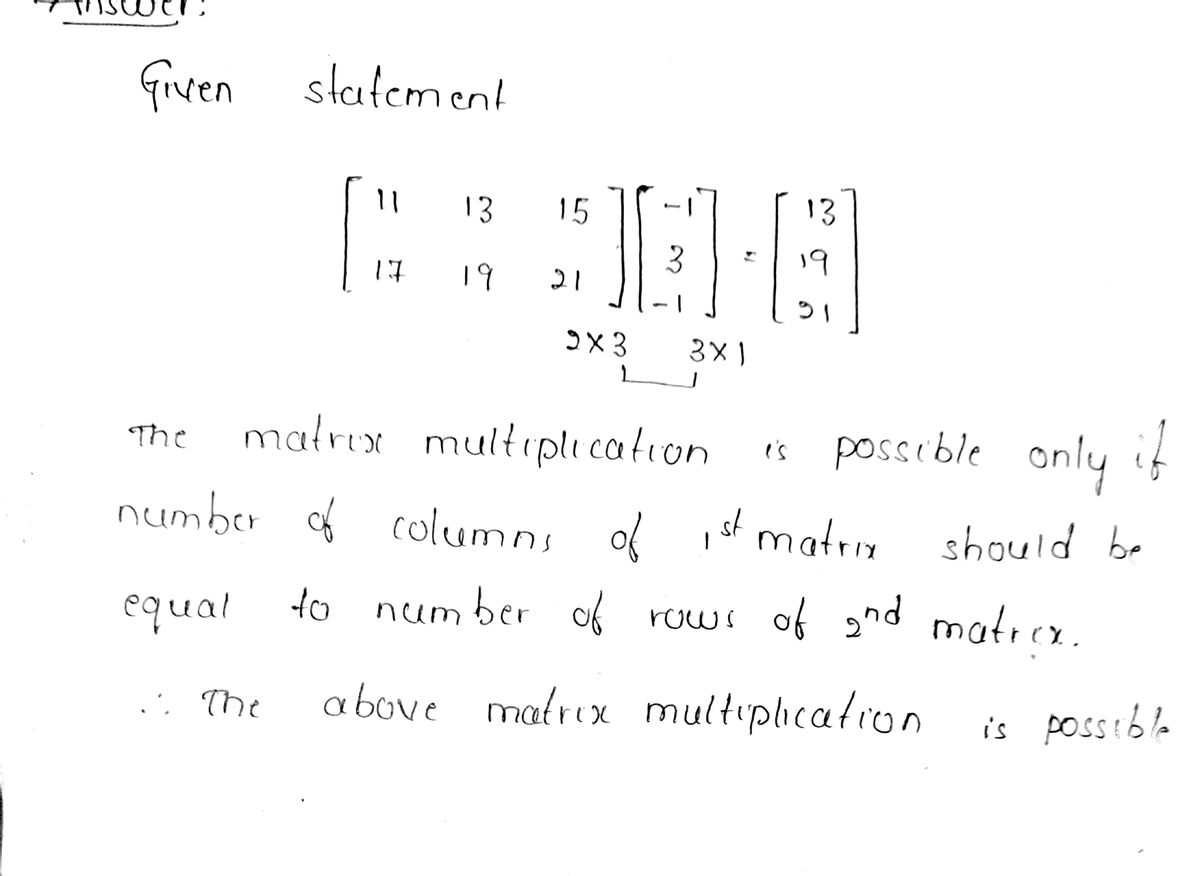 Answer:
Given statement
[ 11 13 15 ] [ -1 ] = [ 13 ]
[ 17 19 21 ] [ 3 ] [ 19 ]
[ -1 ] [ 21 ]
2×3 3×1
The matrix multiplication is possible only if
number of columns of 1st matrix should be
equal to number of rows of 2nd matrix.
∴ The above matrix multiplication is possible